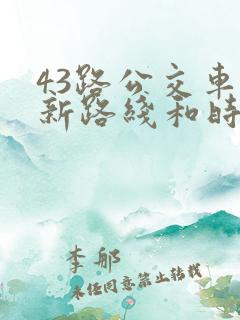 43路公交车
新路线和时
李郍
未经同意禁止转载